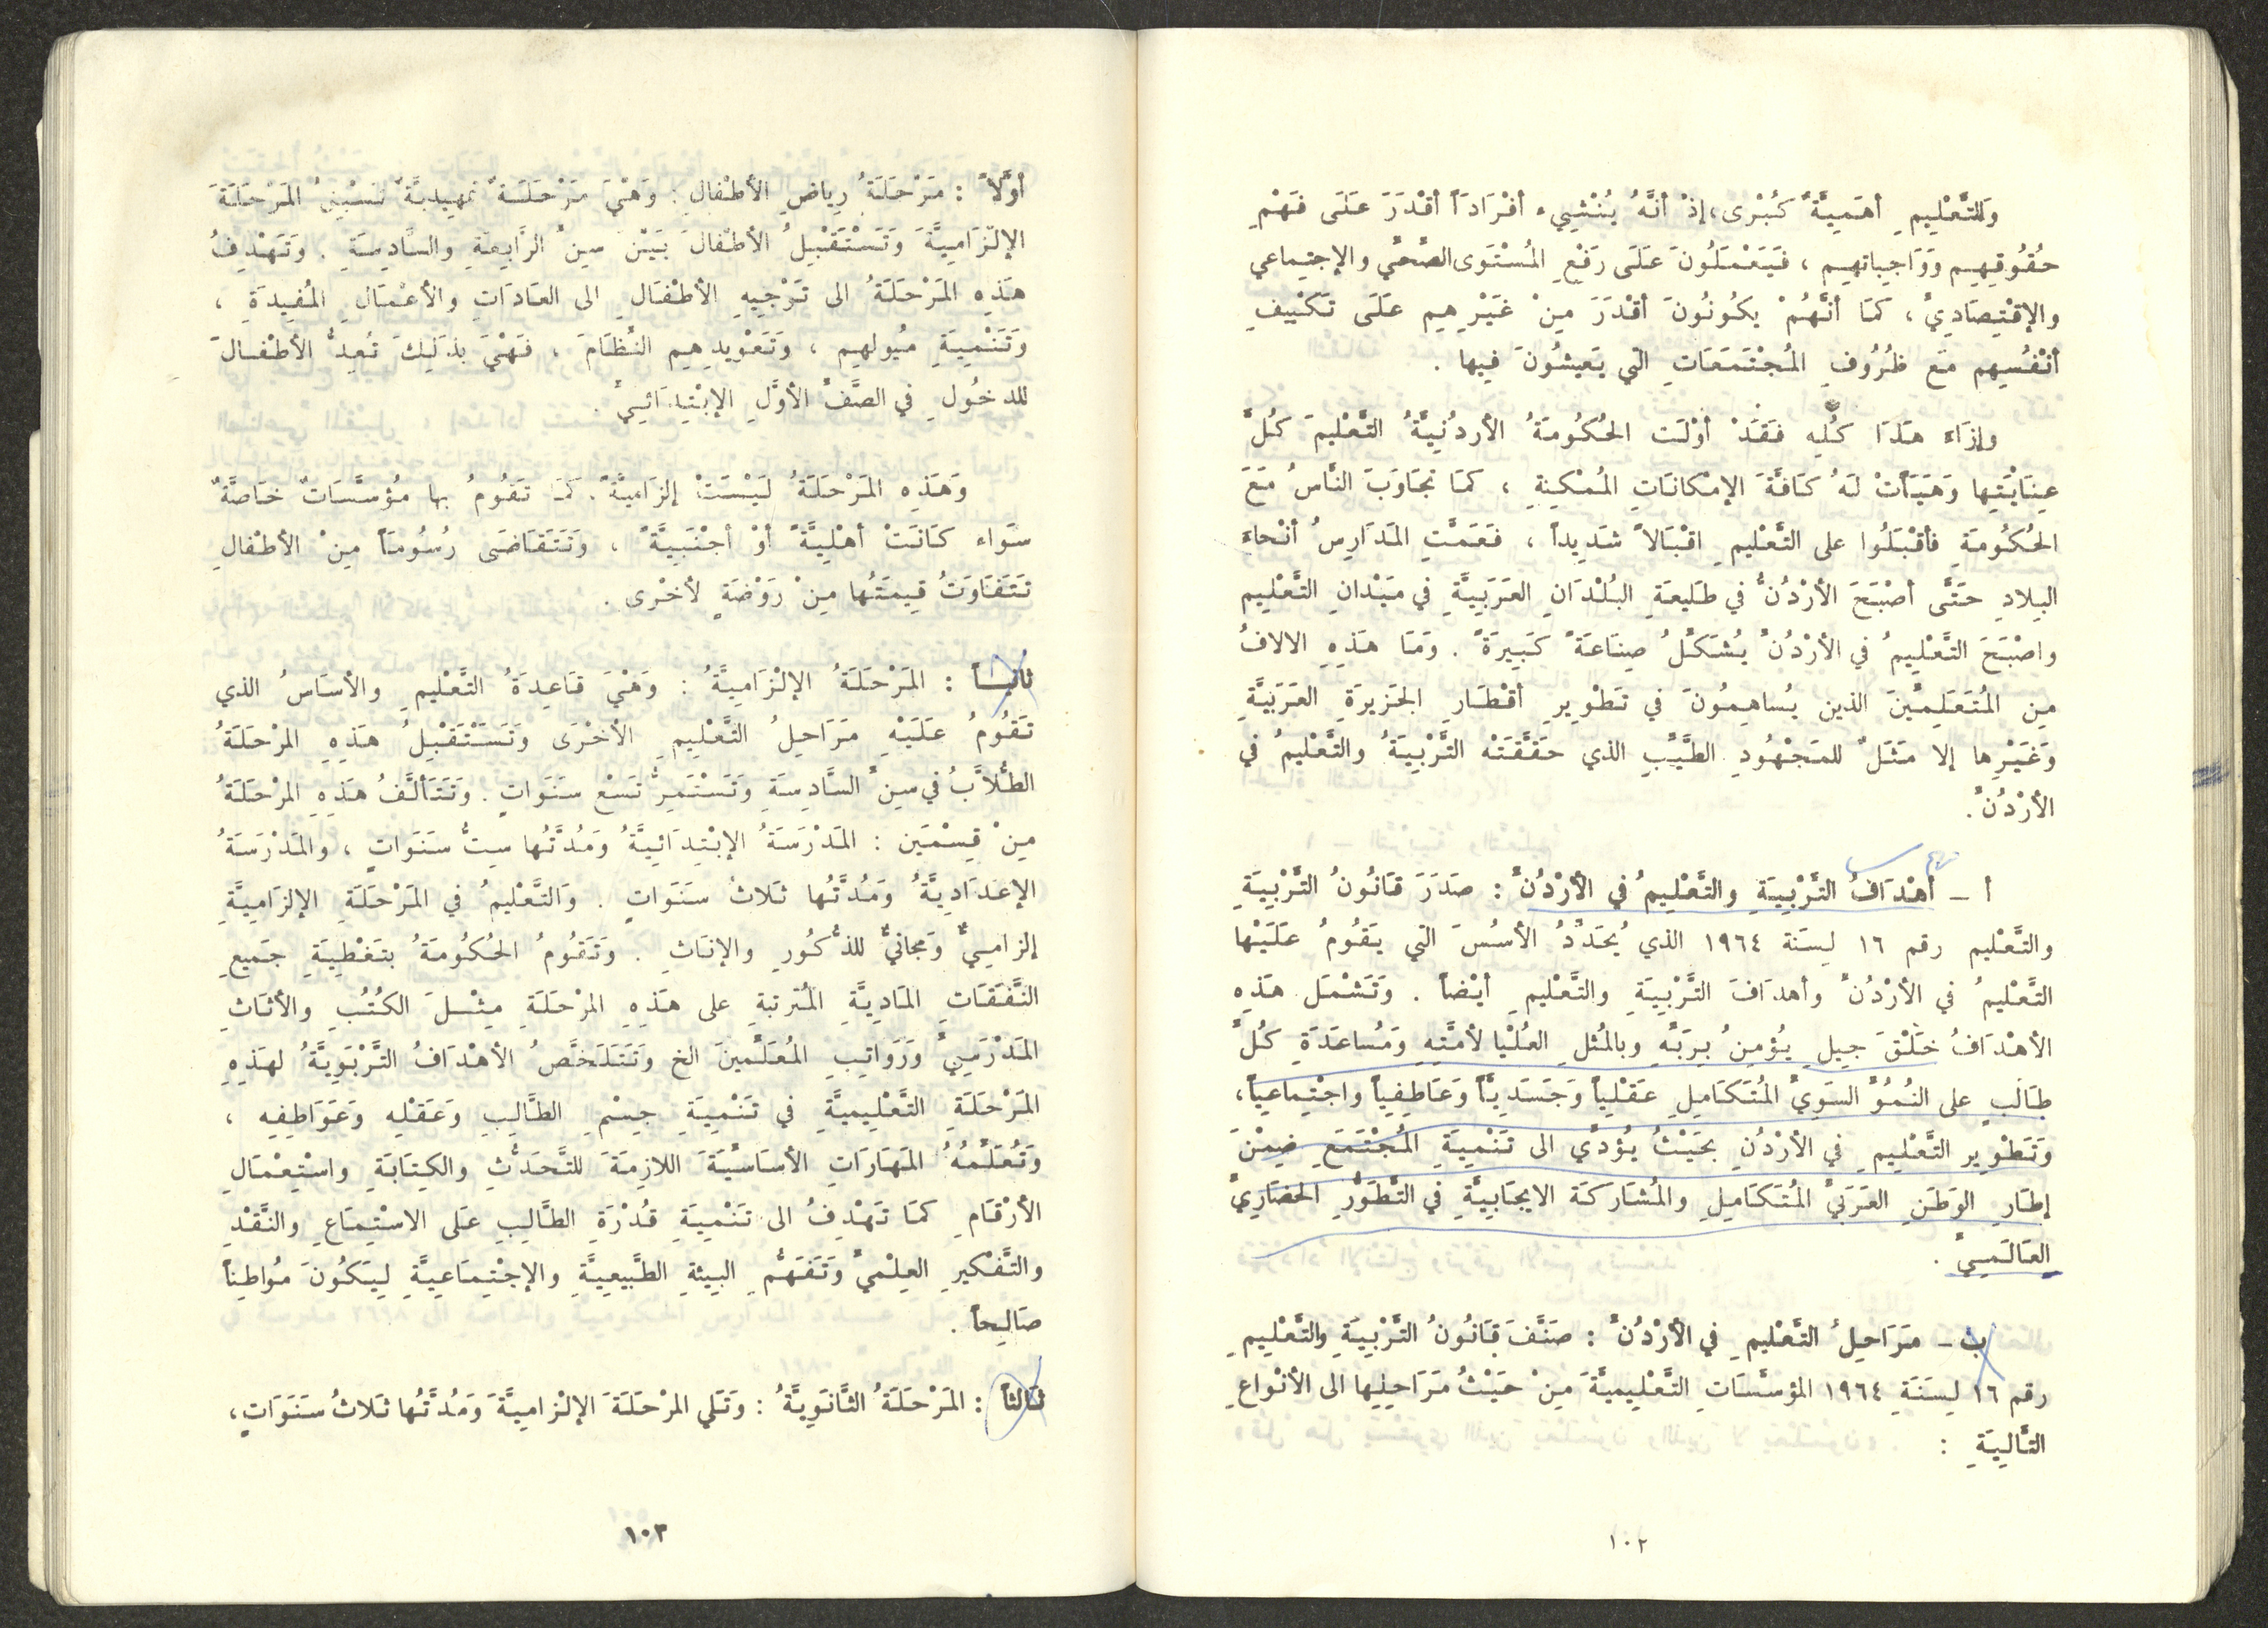 وَلِلتَّعْلِيمِ أهَمِيَّةٌ كُبْرى، إذْ أنَّهُ يُنْشِيء أفْرَادَاً أقْدَرَ عَلَى فَهْمِ
حُقُوقِهِم وَوَاجِباتهِم ، فَيَعْمَلُونَ عَلَى رَفْعِ المُسْتَوَى الصِّحِّي والإجتِماعي
والإقْتِصَادِيِّ ، كَمَا أنَّهُمْ يكُونُونَ أقْدَرَ مِنْ غَيْرِهِم عَلَى تَكْيِيفِ
أنْفُسِهِم مَع ظُرُوفِ المُجْتَمَعَاتِ الّتي يَعِيشُونَ فِيها .
وإزَاءَ هَذَا كُلِّهِ فَقَدْ أوْلَت الحُكُومَةُ الأردُنِيَّةُ التَّعْلِيمَ كُلَّ
عِنَايْتِها وَهَيَأتْ لَهُ كَافَّةَ الإمْكانَاتِ المُمْكِنةِ ، كمَا تَجَاوَبَ النَّاسُ مَعَ
الحُكُومَةِ فأقْبَلُوا على التَّعْلِيمِ اقْبَالاً شَدِيداً ، فَعَمَّتِ المَدَارِسُ أنْحاءَ
البِلادِ حَتَّى أصْبَحَ الأرْدُنُّ في طَلِيعَةِ البُلْدَانِ العَرَبِيَّةِ في مَيْدانِ التَّعْلِيم
واصْبَحَ التَّعْلِيمُ في الأرْدُنِّ يُشَكِّلُ صِنَاعَةً كَبِيرَةً . وَمَا هَذِهِ الالافُ
مِن المُتَعَلِمِّينَ الذين يُساهِمُونَ في تَطْوِيرِ أقْطَارِ الجَزيرَةِ العَرَبيَّةِ
وَغَيْرِها إلا مَثَلٌ للمَجْهُودِ الطَّيِّبِ الذي حَقَّقَتْه التَّرْبِيَةُ والتَّعْلِيمُ في
الأرْدُنِّ .
أ ــ أهْدَافُ التَّرْبِيَةِ والتَّعْلِيمُ في الأرْدُنِّ : صَدَرَ قَانُونُ التَّرْبِيَةِ
والتَّعْلِيم رقم ١٦ لِسَنَة ١٩٦٤ الذي يُحَدِّدُ الأسُسَ الّتي يَقُومُ عَلَيْها
التَّعْلِيمُ في الأرْدُنِّ وأهدَافَ التَّرْبِيَةِ والتَّعْلِيمِ أيْضاً . وَتَشْمَل هَذِهِ
الأهْدَافُ خَلْقَ جِيلِ يُؤمِنُ بِرَبِّهِ وبالمُثلِ العُلْيا لأمَّتِهِ وَمُساعَدَةِ كُلِّ
طَالَبٍ على النُمُوِّ السَوِيِّ المُتَكَامِلِ عَقْلِياً وَجَسَدِيَّاً وَعَاطِفِياً واجْتِماعِياً،
وَتَطْوِير التَّعْلِيمِ في الأرْدُنِ بحَيْثُ يُؤدِّي الى تَنْمِيَةِ المُجْتَمَعِ ضِمْنَ
إطَارِ الوَطَنِ العَرَبيِّ المُتَكَامِلِ والمُشَارَكَة الايجَابِيَّةِ في التَّطَوُّرِ الحضَارِيِّ
العَالَمِيِّ .
ب ــ مَرَاحِلُ التَّعْلِيمِ في الأرْدُنِّ : صَنَّفَ قَانُونُ التَّرْبِيَةِ والتَّعْلِيمِ
رقم ١٦ لِسَنَةِ ١٩٦٤ المؤسَّسَاتِ التَّعْلِيمِيَّةَ مِنْ حَيْثُ مَرَاحِلِها الى الأنْواعِ
التَّالِيَةِ :
١٠٢
أوَّلاً : مَرْحَلَةُ رِياضِ الأطْفالِ : وَهْيَ مَرْحَلَةٌ تمْهِيدِيَّةٌ تَسْبِقُ المَرْحَلَةَ
الإلْزَامِيَّةَ وَتَسْتَقْبِلُ الأطْفالَ بَيْنَ سِنِّ الرَّابِعَةِ والسَّادِسَةِ . وَتَهْدِفُ
هَذِهِ المَرْحَلَةُ الى تَوْجِيهِ الأطْفَالِ الى العَادَاتِ والأعْمَالِ المُفِيدَةِ ،
وَتَنْمِيَةِ مُيُولهِم ، وَتَعْوِيدِهِم النِّظَامَ ، فَهْيَ بذَلِكَ تُعِدُّ الأطْفالَ
للدخُولِ في الصَّفِّ الأوَّلِ الإبْتِدَائِيِّ .
وَهَذِهِ المَرْحَلَةُ لَيْسَتْ إلزَامِيَّةً. كَمَا تَقُومُ بها مُؤسَّسَاتٌ خَاصَّةٌ
سَواء كَانَتْ أهْلِيَّةً أوْ أجْنَبِيَّةً ، وَتَتَقَاضَى رُسُومَاً مِنْ الأطْفالِ
تَتَفَاوَتُ قِيمَتُها مِنْ رَوْضَةٍ لأخْرى .
ثانيــاً : المَرْحَلَةُ الإلْزَامِيَّةُ : وَهْيَ قَاعِدَةُ التَّعْلِيمِ والأسَاسُ الذي
تَقُومُ عَلَيْهِ مَرَاحِلُ التَّعْلِيمِ الأخْرَى وَتَسْتَقْبِلُ هَذِهِ المرْحَلَةُ
الطُّلاَّبُ في سِنِّ السَّادِسَةِ وَتَسْتَمِرُّ تَسْعَ سَنَوَاتٍ . وَتَتَألَّفُ هَذِهِ المرْحَلَةُ
مِنْ قِسْمَين : المَدْرَسَةُ الإبْتِدَائِيَّةُ وَمُدَّتُها سِتُّ سَنَوَاتٍ ، والمَدْرَسَةُ
الإعدَادِيَّةُ وَمُدَّتُها ثَلاثُ سَنَوَاتٍ . وَالتَّعْلِيمُ في المَرْحَلَةِ الإلزَامِيَّةِ
إلزامِيٌّ وَمجانيٌّ للذُّكُورِ والإنَاثِ . وَتَقُومُ الحُكُومَةُ بتَغْطِيَةِ جَمِيعِ
النَّفَقَاتِ المَادِيَّةِ المُترتبةِ على هَذِهِ المرْحَلَةِ مِثْلَ الكُتُبِ والأثَاثِ
المَدْرَسِيِّ وَرَوَاتِبِ المُعَلِّمِينَ الخ وَتَتَلَخَّصُ الأهْدَافُ التَّرْبَوِيَّةُ لهذِهِ
المَرْحَلَةِ التَّعْلِيمِيَّةِ في تَنْمِيَةِ جِسْمِ الطَّالِبِ وَعَقْلِهِ وَعَوَاطِفِهِ ،
وَتُعَلِّمُهُ المَهَارَاتِ الأسَاسِيَّةَ اللازِمَةَ للتَّحَدُّثِ والكِتَابَةِ واسْتِعْمَالِ
الأرْقَامِ كمَا تَهْدِفُ الى تَنْمِيَةِ قُدْرَةِ الطَّالِبِ عَلى الاسْتِمَاعِ والنَّقْدِ
والتَّفْكيرِ العِلْميِّ وَتَفَهُّمِ البِيئةِ الطَّبِيعِيَّةِ والإجْتِمَاعِيَّةِ لِيَكُونَ مُواطِناً
صَالِحاً .
ثالثاً : المَرْحَلَةُ الثَّانَوِيَّةُ : وَتَلي المرْحَلَةَ الإلْزامِيَّةَ وَمُدَّتُها ثَلاثُ سَنَوَاتٍ،
١٠٣